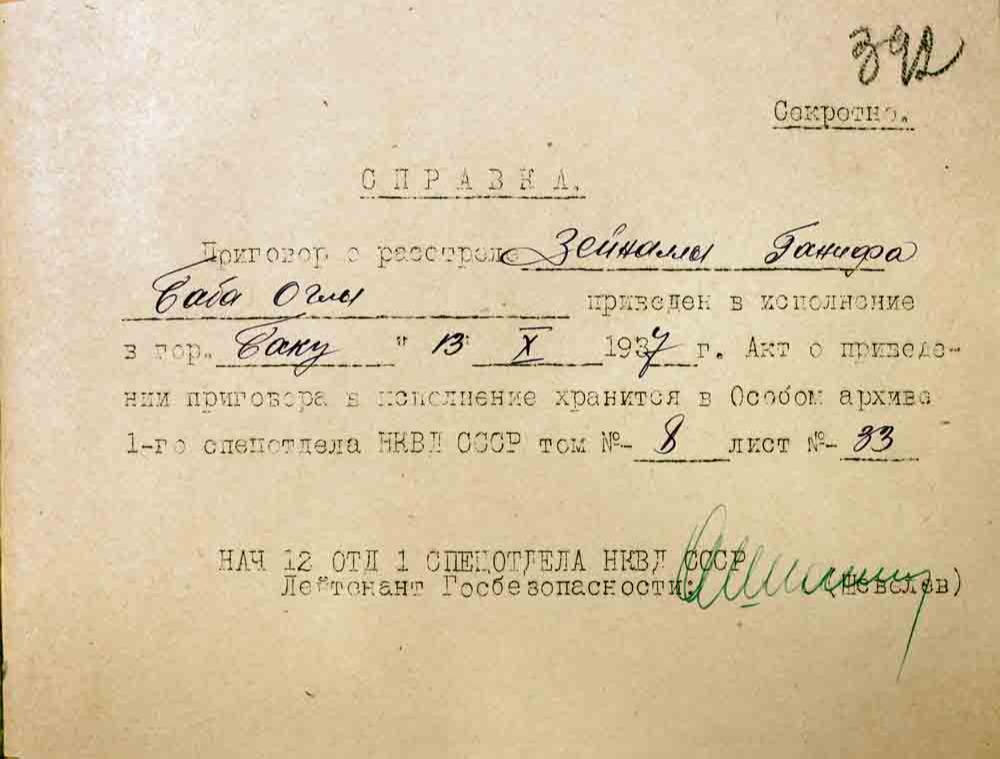 392
Секретно.
СПРАВКА.
Приговор о расстреле Зейналлы Ганифа
Баба Оглы приведен в исполнение
в гор. Баку " 13 " X 1937 г. Акт о приведе-
нии приговора в исполнение хранится в Особом архиве
1-го спецотдела НКВД СССР том №- 8 лист №- 33
НАЧ 12 ОТД 1 СПЕЦОТДЕЛА НКВД СССР
Лейтенант Госбезопасности: (Шевелев)